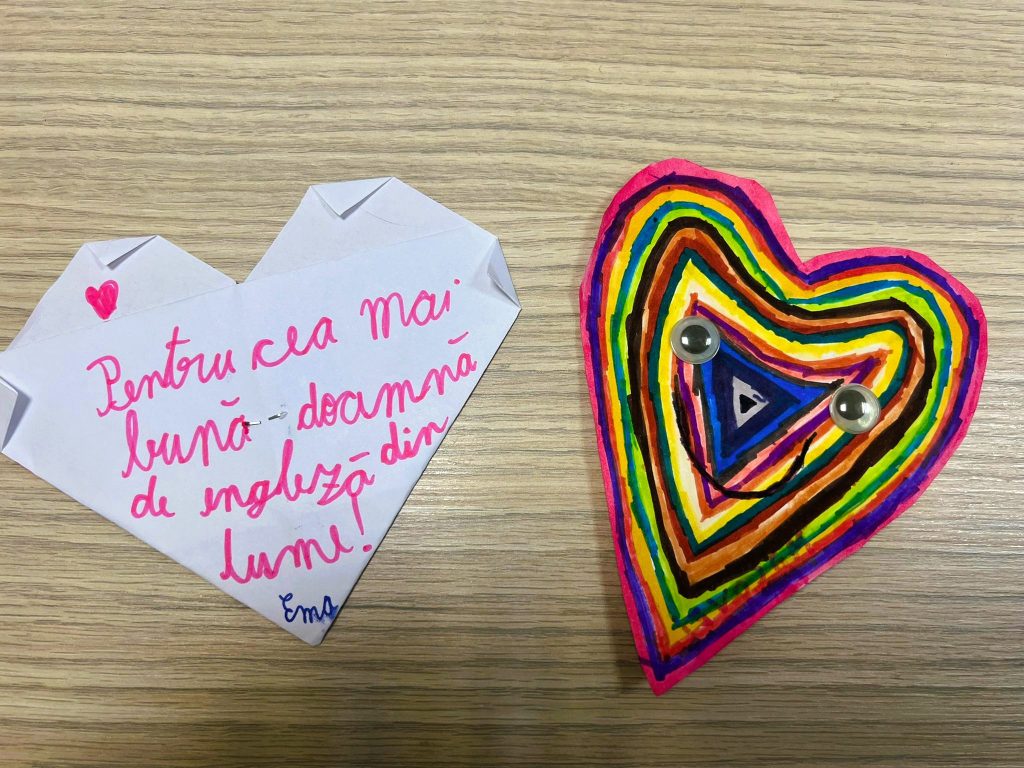 Pentru cea mai
bună doamnă
de engleză din
lume!
Ema